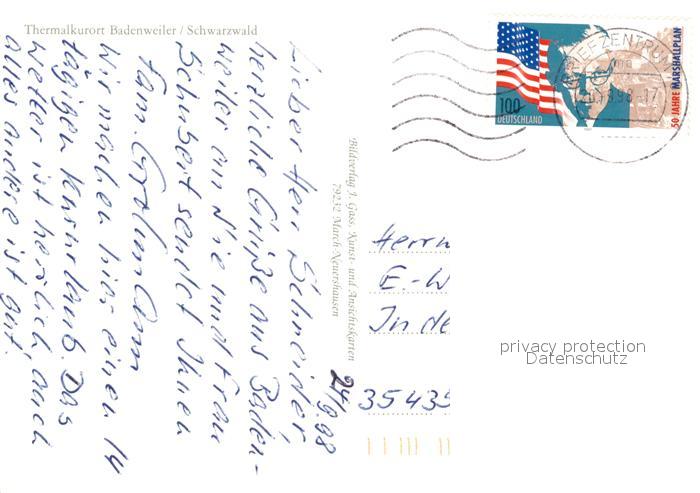 Thermalkurort Badenweiler / Schwarzwald
24/9.98
Lieber Herr Schneider,
herzliche Grüße aus Baden-
weiler an Sie und Frau
Schubert sendet Ihnen
Fam.
Wir machen hier einen 14
tägigen Kururlaub. Das
Wetter ist herrlich, auch
alles andere ist gut.
Bildverlag J. Gass Kunst- und Ansichtskarten
79232 March-Neuershausen
BRIEFZENTRUM
100
DEUTSCHLAND
50 JAHRE MARSHALLPLAN
Herrn
E.-W
In de
35435
privacy protection
Datenschutz